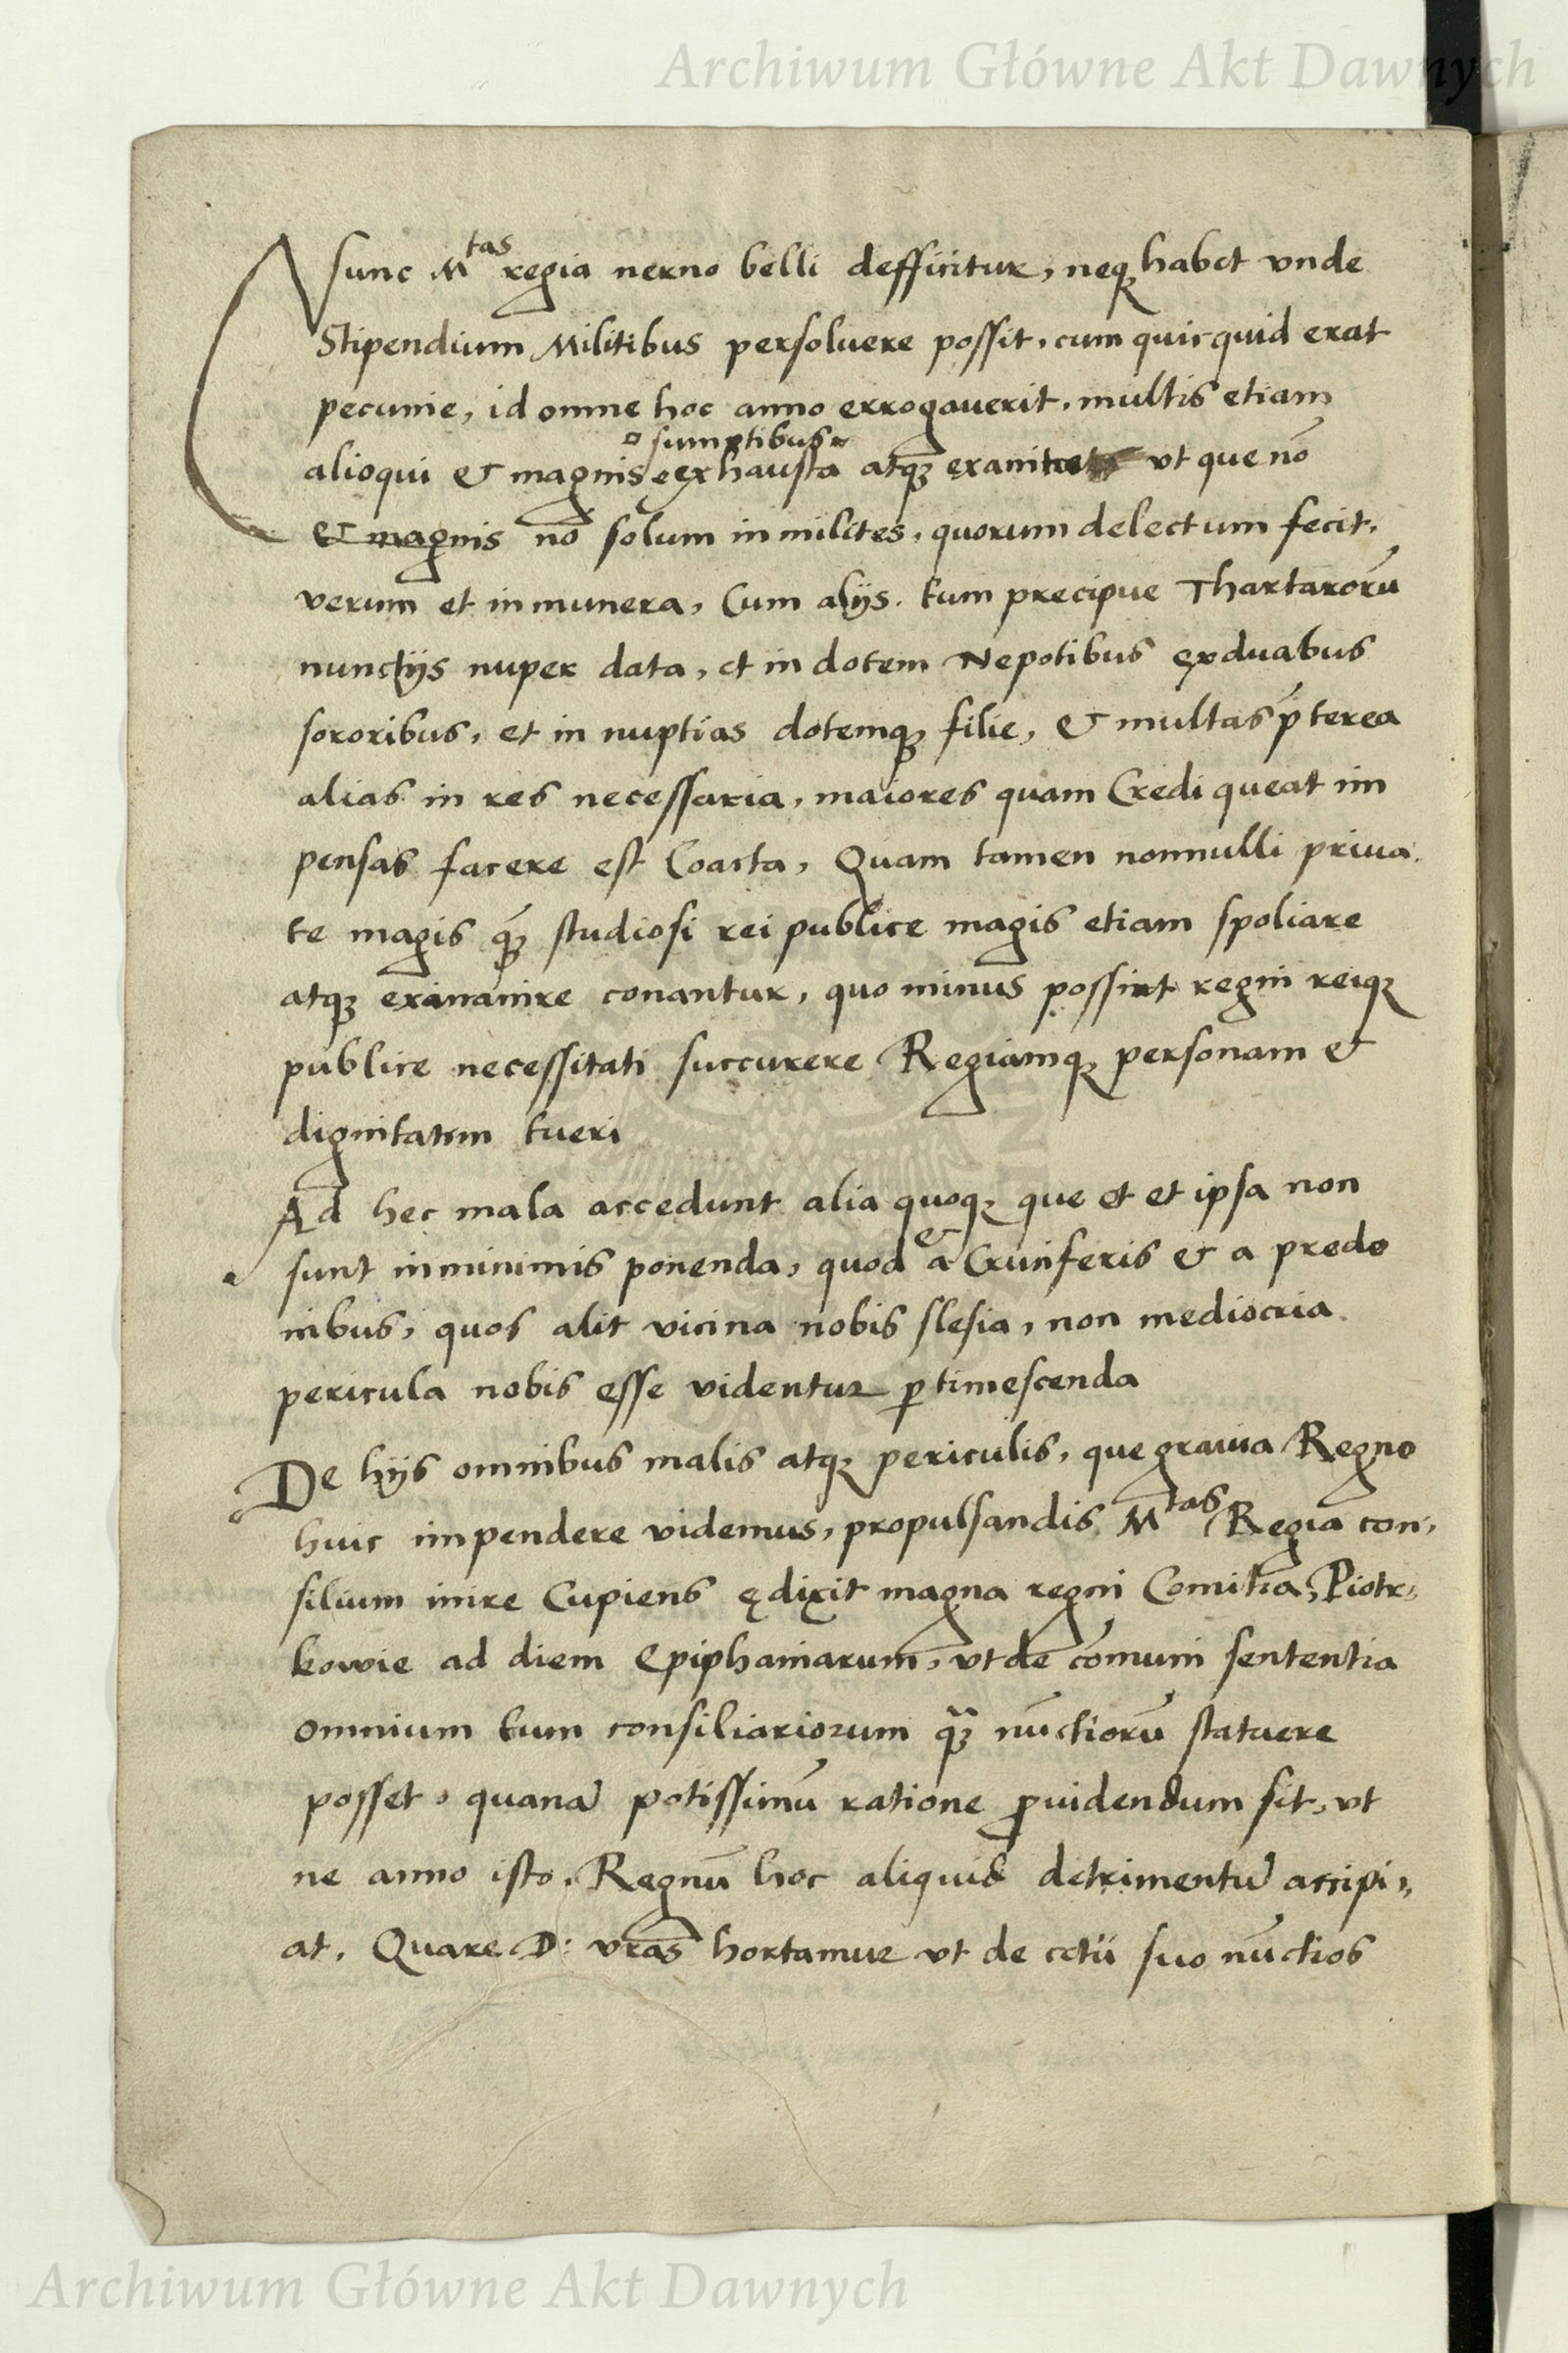 Archiwum Główne Akt Dawnych
Nunc M^tas regia neruo belli defficitur, neq₃ habet vnde
Stipendium Militibus persoluere possit, cum quicquid erat
pecunie, id omne hoc anno errogauerit, multis etiam
sumptibus
alioqui & magnis exhausta atq₃ exanita vt que nō
& magnis nō solum in milites, quorum delectum fecit,
verum et in munera, Cum alijs. tum precipue Thartarorū
nunctijs nuper data, et in dotem Nepotibus ex duabus
sororibus, et in nuptias dotemq₃ filie, & multas p̄terea
alias in res necessaria, maiores quam Credi queat im
pensas facere est Coacta, Quam tamen nonnulli priua
te magis q̄₃ studiosi rei publice magis etiam spoliare
atq₃ exinanire conantur, quo minus possint regni reiq₃
publice necessitati succurere Regiamq₃ personam &
dignitatem tueri
Ad hec mala accedunt alia quoq₃ que et et ipsa non
&
sunt in minimis ponenda, quod a Cruciferis & a predo
nibus, quos alit vicina nobis slesia, non mediocria
pericula nobis esse videntur ꝑtimescenda
De hijs omnibus malis atq₃ periculis, que grauia Regno
huic impendere videmus, propulsandis M^tas Regia con,
silium inire Cupiens ędixit magna regni Comitia, Piotr,
kowie ad diem Epiphaniarum, vt de cōmuni sententia
omnium tum consiliariorum q̄₃ nūctiorū statuere
posset, quanā potissimū ratione ꝓuidendum sit, vt
ne anno isto, Regnū hoc aliquid detrimentū accipi,,
at. Quare D: vrās hortamur vt de cetū suo nūctios
Archiwum Główne Akt Dawnych